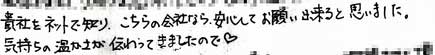 貴社をネットで知り、こちらの会社なら、安心してお願い出来ると思いました。
気持ちの温かさが伝わってきましたので♡